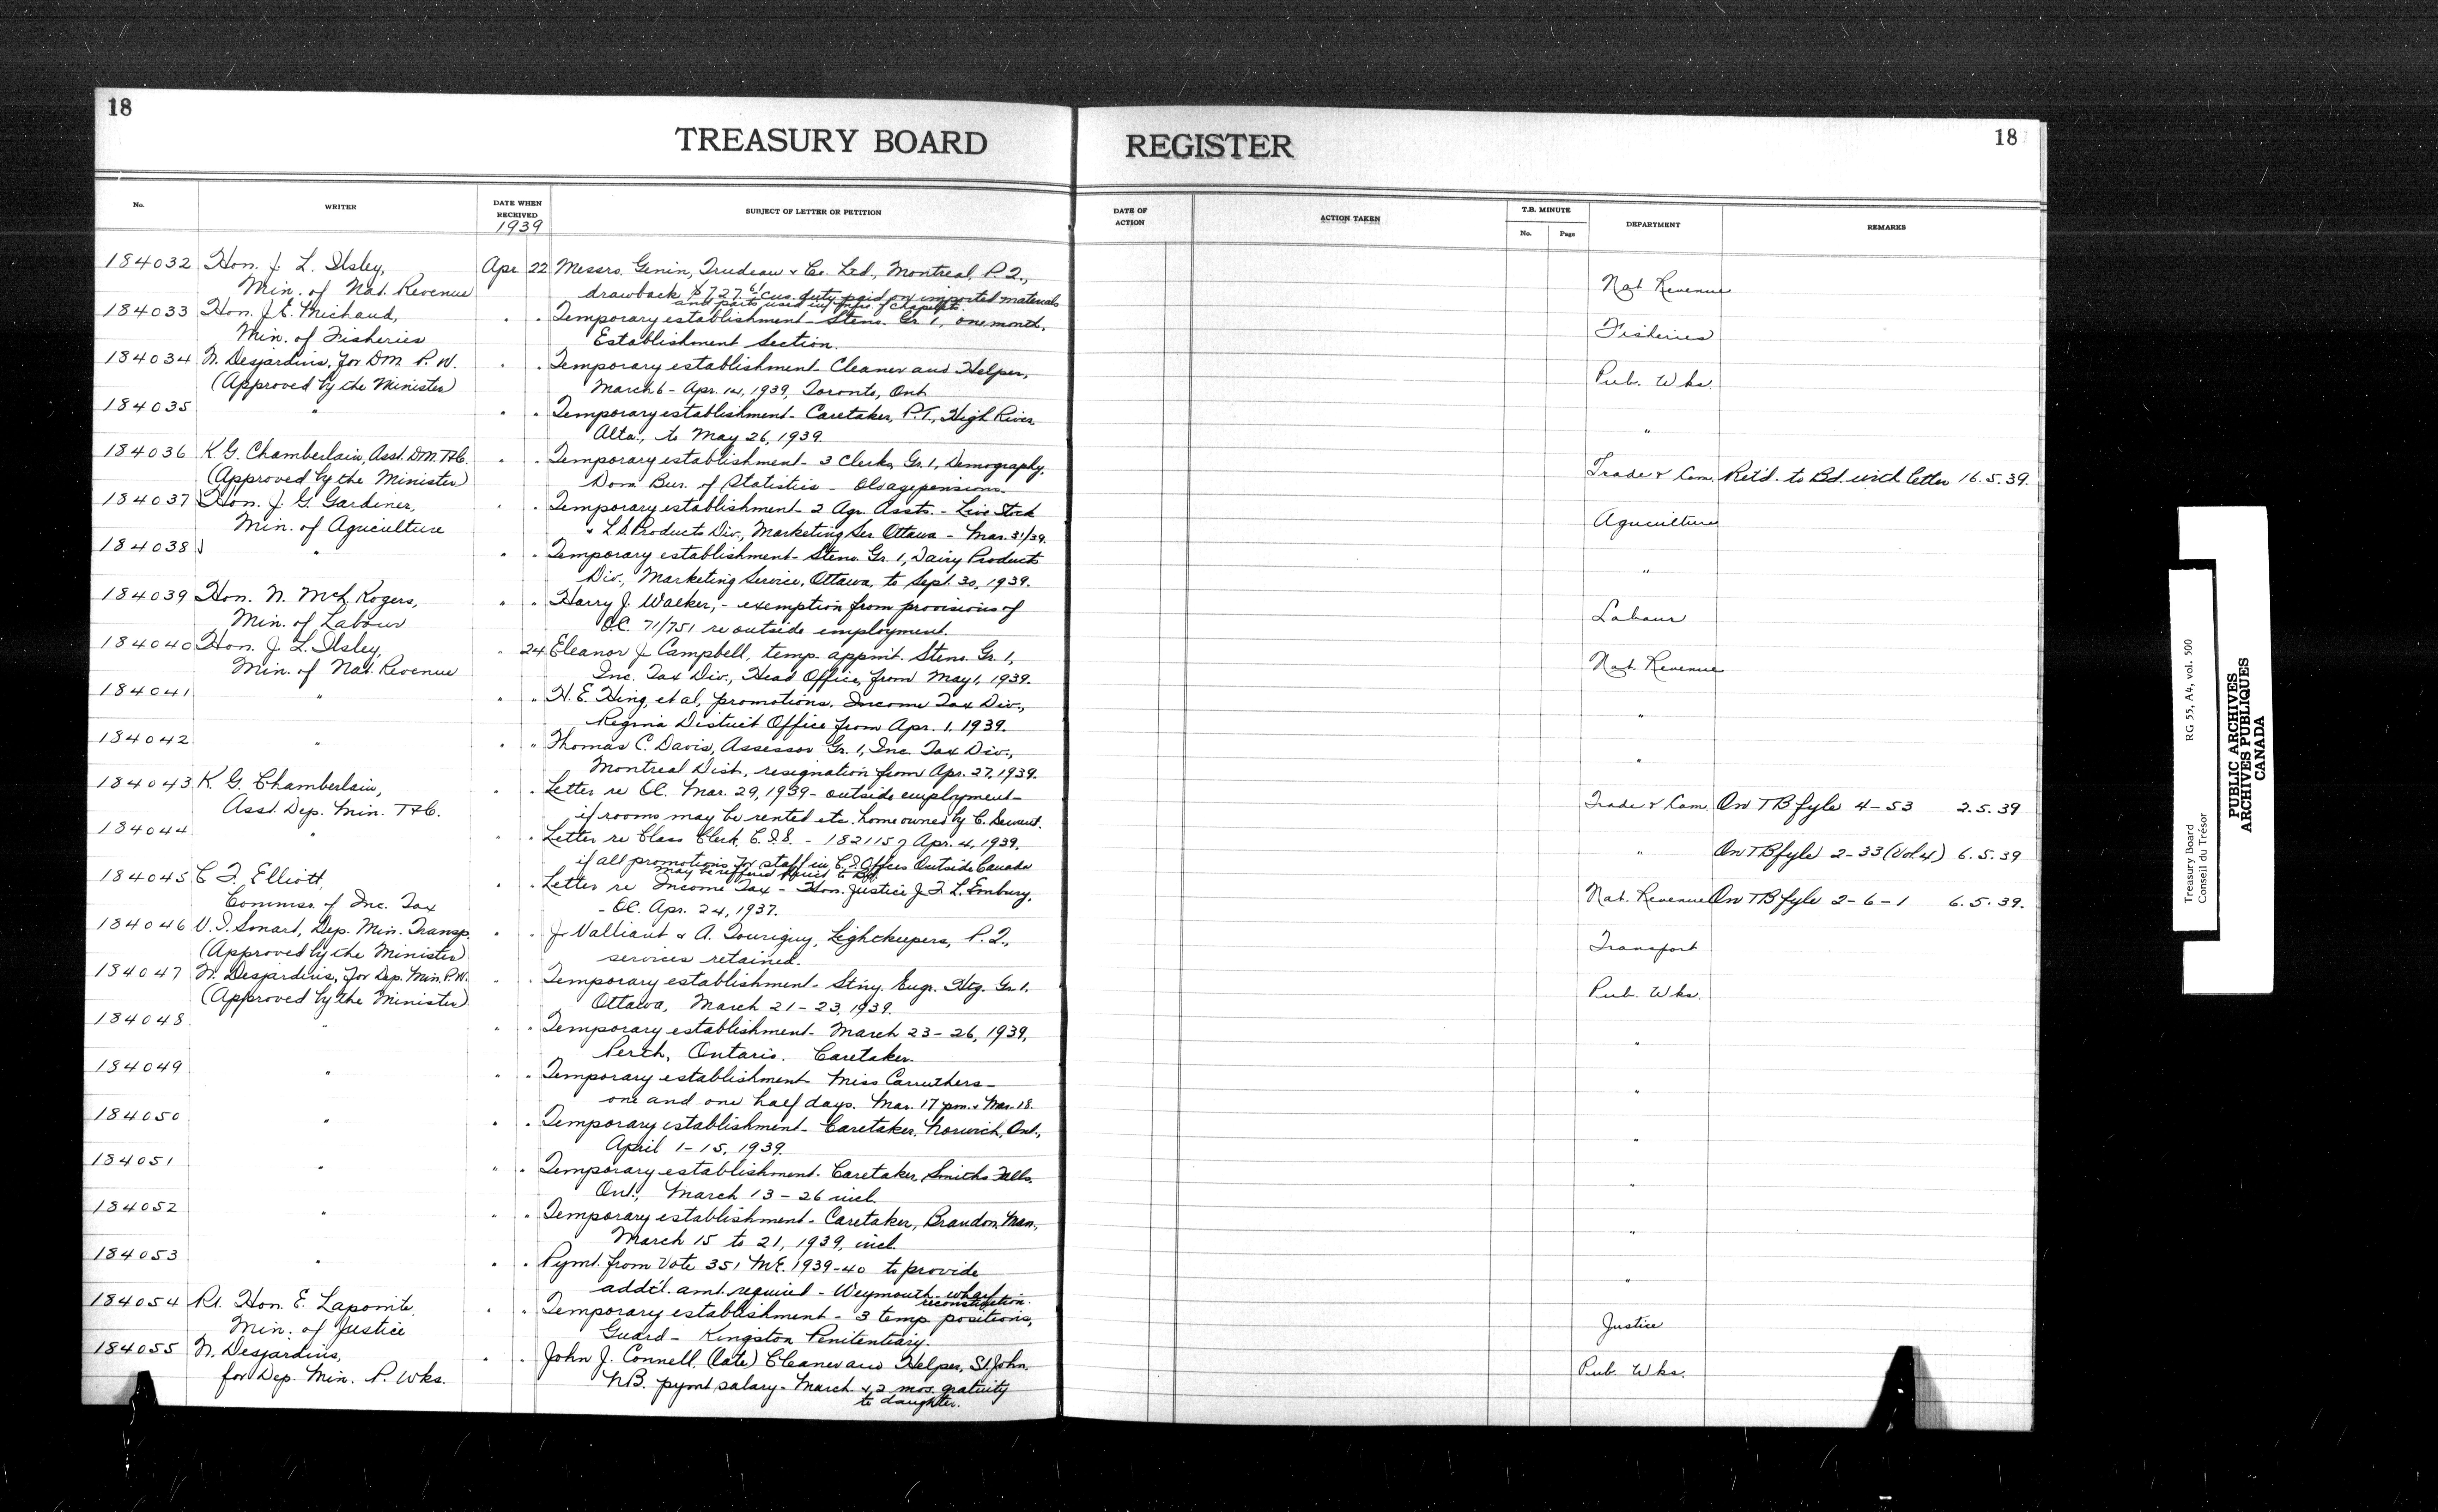 18
TREASURY BOARD
REGISTER
18
No.
WRITER
DATE WHEN RECEIVED
1939
SUBJECT OF LETTER OR PETITION
DATE OF ACTION
ACTION TAKEN
T.B. MINUTE
No.
Page
DEPARTMENT
REMARKS
184032 Hon. J. L. Ilsley, Apr 22 Messrs. Genin, Trudeau & Co. Ltd., Montreal, P.Q., Nat. Revenue
Min. of Nat. Revenue drawback $727.61 cus. duty paid on imported materials
and parts used in mfre. of
184033 Hon. J. E. Michaud, " " Temporary establishment - Steno. Gr. 1, one month, Fisheries
Min. of Fisheries Establishment Section.
184034 N. Desjardins, for D.M. P.W. " " Temporary establishment - Cleaner and Helper, Pub. Wks.
(Approved by the Minister) March 6 - Apr. 14, 1939, Toronto, Ont.
184035 " " " Temporary establishment - Caretaker, P.T., High River "
Alta., to May 26, 1939.
184036 K. G. Chamberlain, Asst. D.M. T&C. " " Temporary establishment - 3 Clerks, Gr. 1, Demography. Trade & Com. Ret'd. to Bd. with letter 16.5.39.
(Approved by the Minister) Dom. Bur. of Statistics - Old age pensions.
184037 Hon. J. G. Gardiner, " " Temporary establishment - 2 Agr. Assts. - Live Stock Agriculture
Min. of Agriculture & L.S. Products Div., Marketing Ser. Ottawa - Mar. 31/39.
184038 " " " Temporary establishment - Steno. Gr. 1, Dairy Products "
Div., Marketing Service, Ottawa, to Sept. 30, 1939.
184039 Hon. N. McL. Rogers, " " Harry J. Walker, - exemption from provisions of Labour
Min. of Labour O.C. 71/751 re outside employment.
184040 Hon. J. L. Ilsley, " 24 Eleanor J. Campbell, temp. appmt. Steno. Gr. 1, Nat. Revenue
Min. of Nat. Revenue Inc. Tax Div., Head Office, from May 1, 1939.
184041 " " " H. E. Hing, et al, promotions, Income Tax Div., "
Regina District Office from Apr. 1, 1939.
184042 " " " Thomas C. Davis, Assessor Gr. 1, Inc. Tax Div., "
Montreal Dist., resignation from Apr. 27, 1939.
184043 K. G. Chamberlain, " " Letter re O.C. Mar. 29, 1939 - outside employment - Trade & Com. On TB fyle 4-53 2.5.39
Asst. Dep. Min. T&C. if rooms may be rented etc. home owned by C. Servant.
184044 " " " Letter re Class Clerk, C.I.S. - 182115 of Apr. 4, 1939, " On TB fyle 2-33 (Vol. 4) 6.5.39
if all promotions for staff in C.I. Offices Outside Canada
may be
184045 C. F. Elliott, " " Letter re Income Tax - Hon. Justice J. F. L. Embury, Nat. Revenue On TB fyle 2-6-1 6.5.39.
Commsr. of Inc. Tax - O.C. Apr. 24, 1937.
184046 V. I. Smart, Dep. Min. Transp. " " J. Valliant & A. Tourigny, Lightkeepers, P.Q., Transport
(Approved by the Minister) services retained.
184047 N. Desjardins, for Dep. Min. P.W. " " Temporary establishment - Stny. Engr. Htg. Gr. 1, Pub. Wks.
(Approved by the Minister) Ottawa, March 21-23, 1939.
184048 " " " Temporary establishment - March 23-26, 1939, "
Perth, Ontario. Caretaker.
184049 " " " Temporary establishment - Miss Carruthers - "
one and one half days. Mar. 17 p.m. & Mar. 18.
184050 " " " Temporary establishment - Caretaker, Norwich, Ont., "
April 1-15, 1939.
184051 " " " Temporary establishment - Caretaker, Smiths Falls, "
Ont., March 13-26 incl.
184052 " " " Temporary establishment - Caretaker, Brandon, Man., "
March 15 to 21, 1939, incl.
184053 " " " Pymt. from Vote 351 M.E. 1939-40 to provide "
addt'l. amt. required - Weymouth wharf
reconstruction.
184054 Rt. Hon. E. Lapointe, " " Temporary establishment - 3 temp. positions, Justice
Min. of Justice Guard - Kingston Penitentiary.
184055 N. Desjardins, " " John J. Connell, (late) Cleaner and Helper, St. John, Pub. Wks.
for Dep. Min. P. Wks. N.B. pymt salary - March & 2 mos. gratuity
to daughter.
Treasury Board RG 55, A4, vol. 500
Conseil du Trésor
PUBLIC ARCHIVES
ARCHIVES PUBLIQUES
CANADA